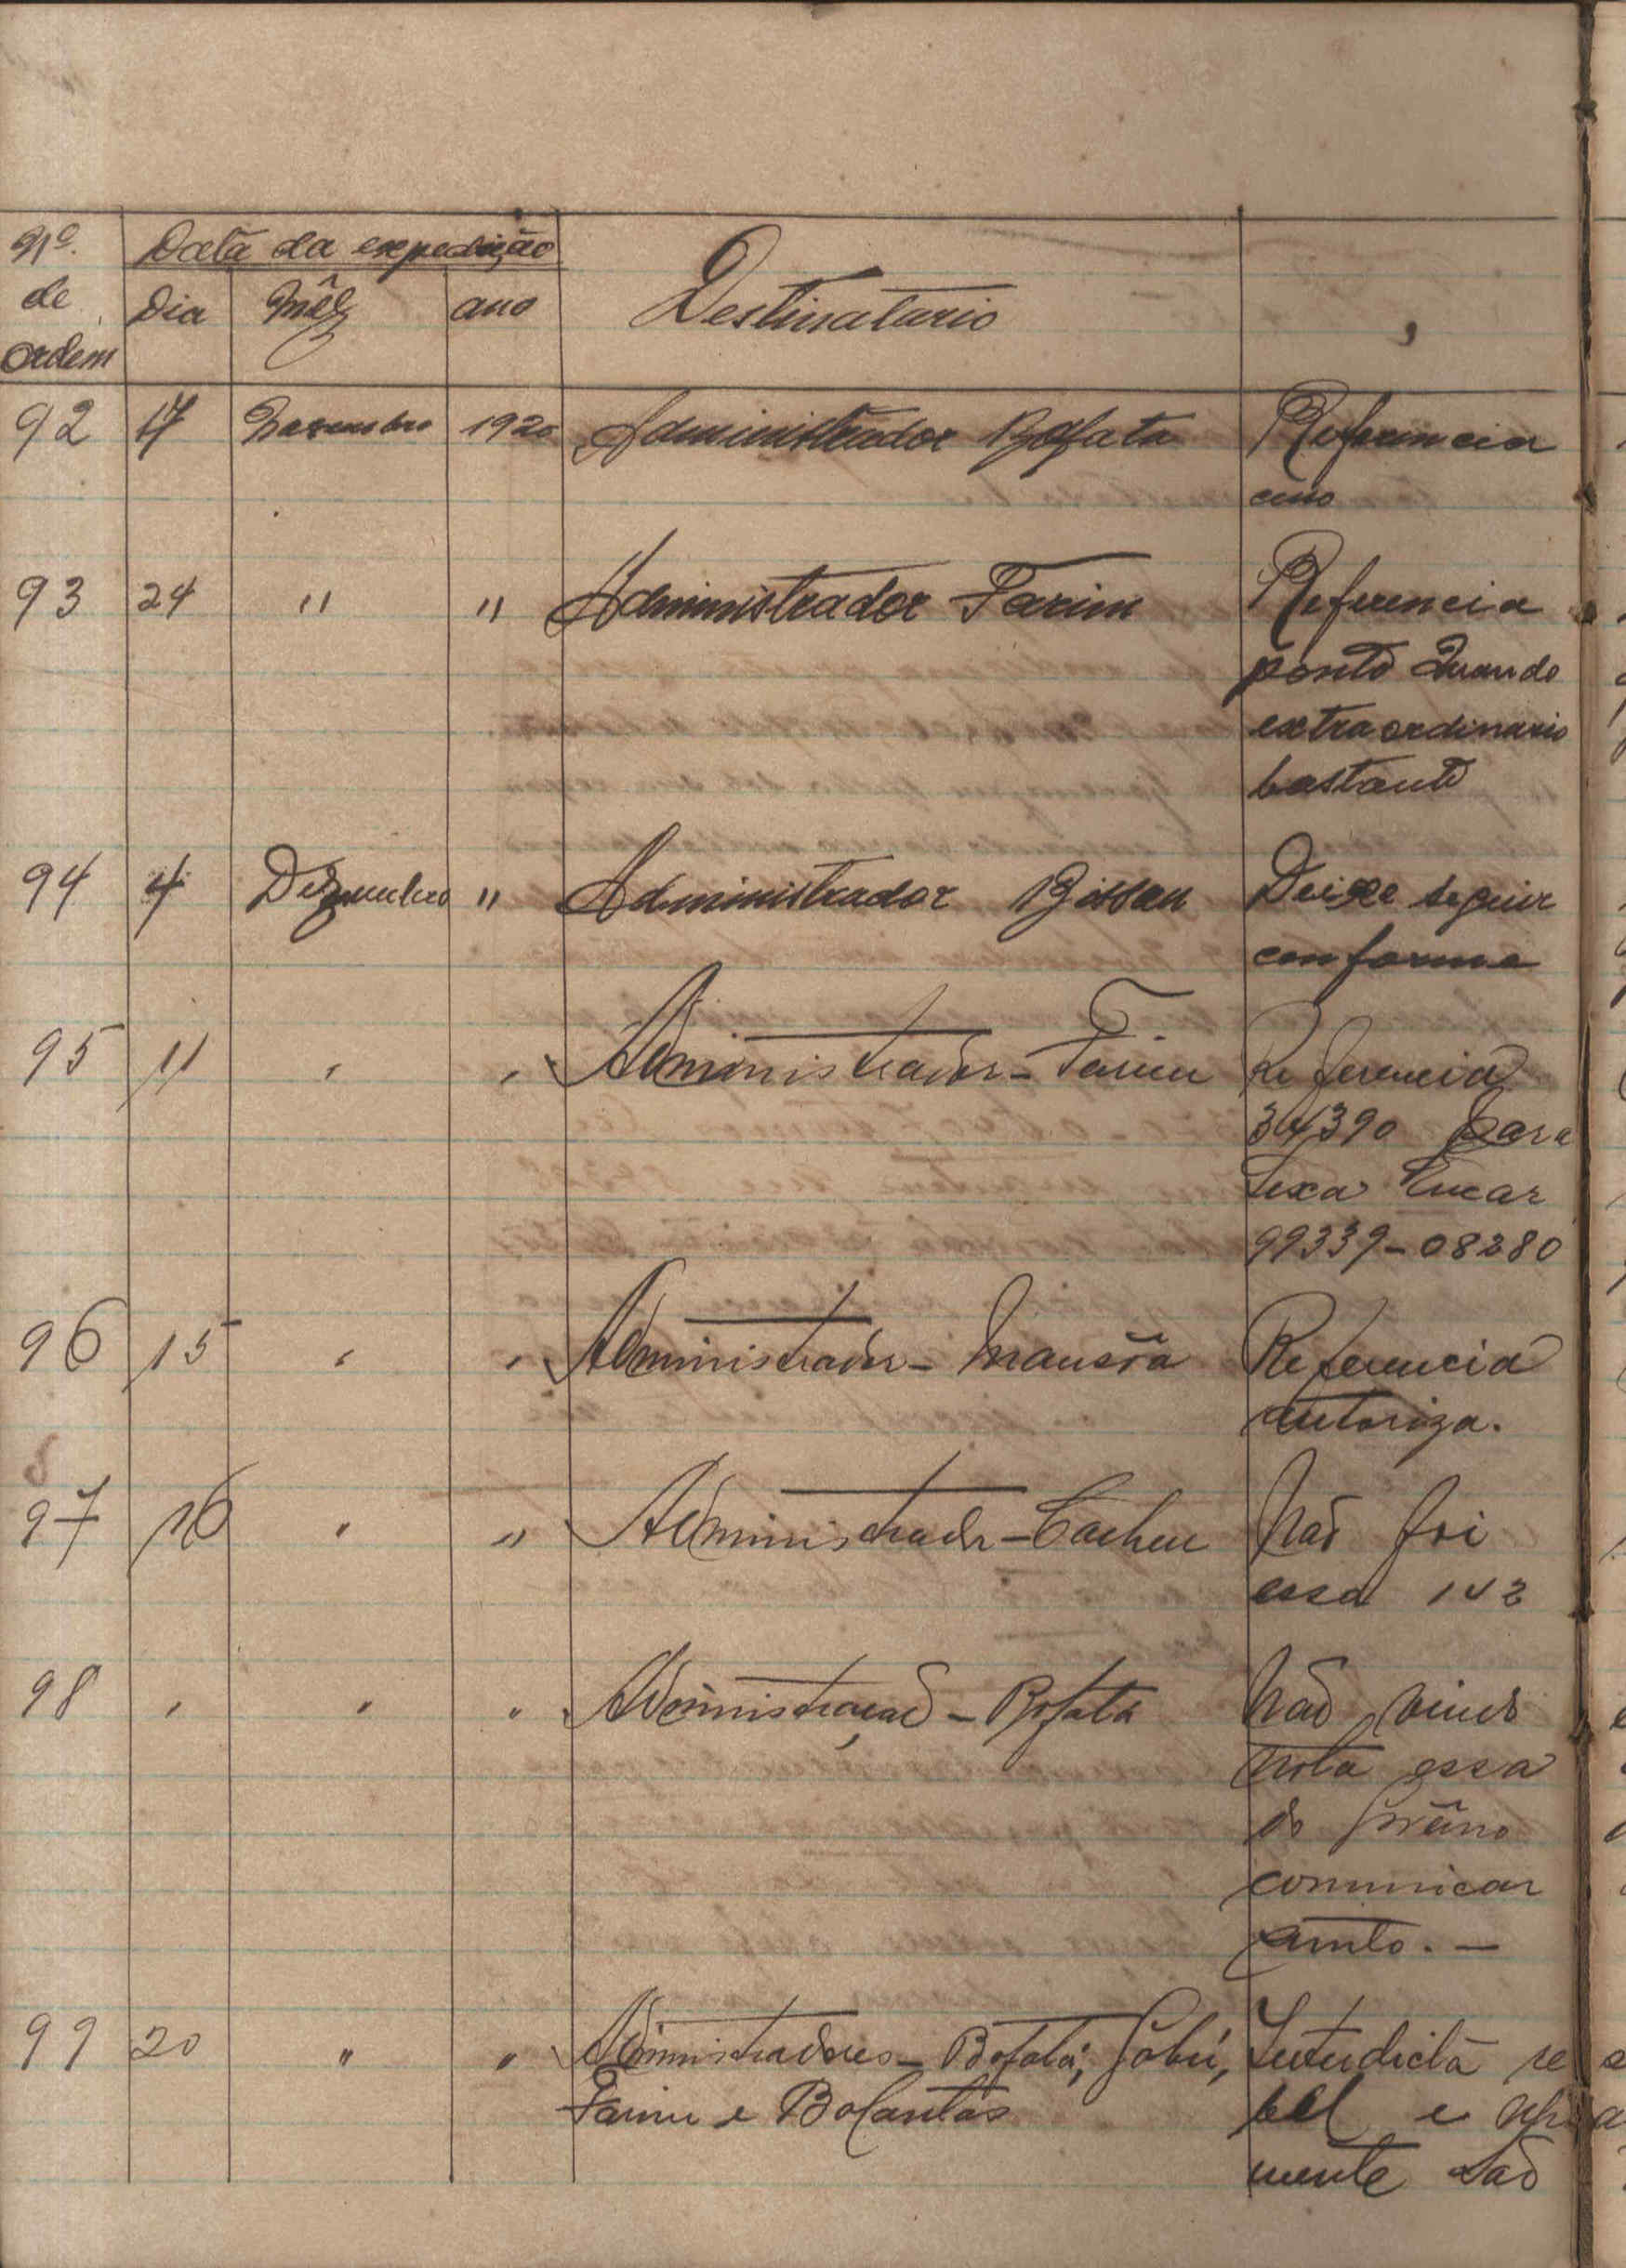 Nº de ordem Data da expedição Dia Mêz ano Destinatario
92 17 1920 Administrador Bafata Referencia
93 24 " " Administrador Farim Referencia
ponto Quando
extraordinario
bastante
94 4 Dezembro " Administrador Bissau Deixe seguir
conforme
95 11 " " Administrador - Farim Referencia
34390 Para
99339-08280
96 15 " " Administrador - Mansôa Referencia
autoriza.
97 16 " " Administrador - Cacheu Não foi
essa 142
98 " " " Administração - Bafatá Não
nota essa
do
comunicar
99 20 " " Administradores - Bafatá, Gabú, Interdicta re
Farim e Balantas bel e
mente são